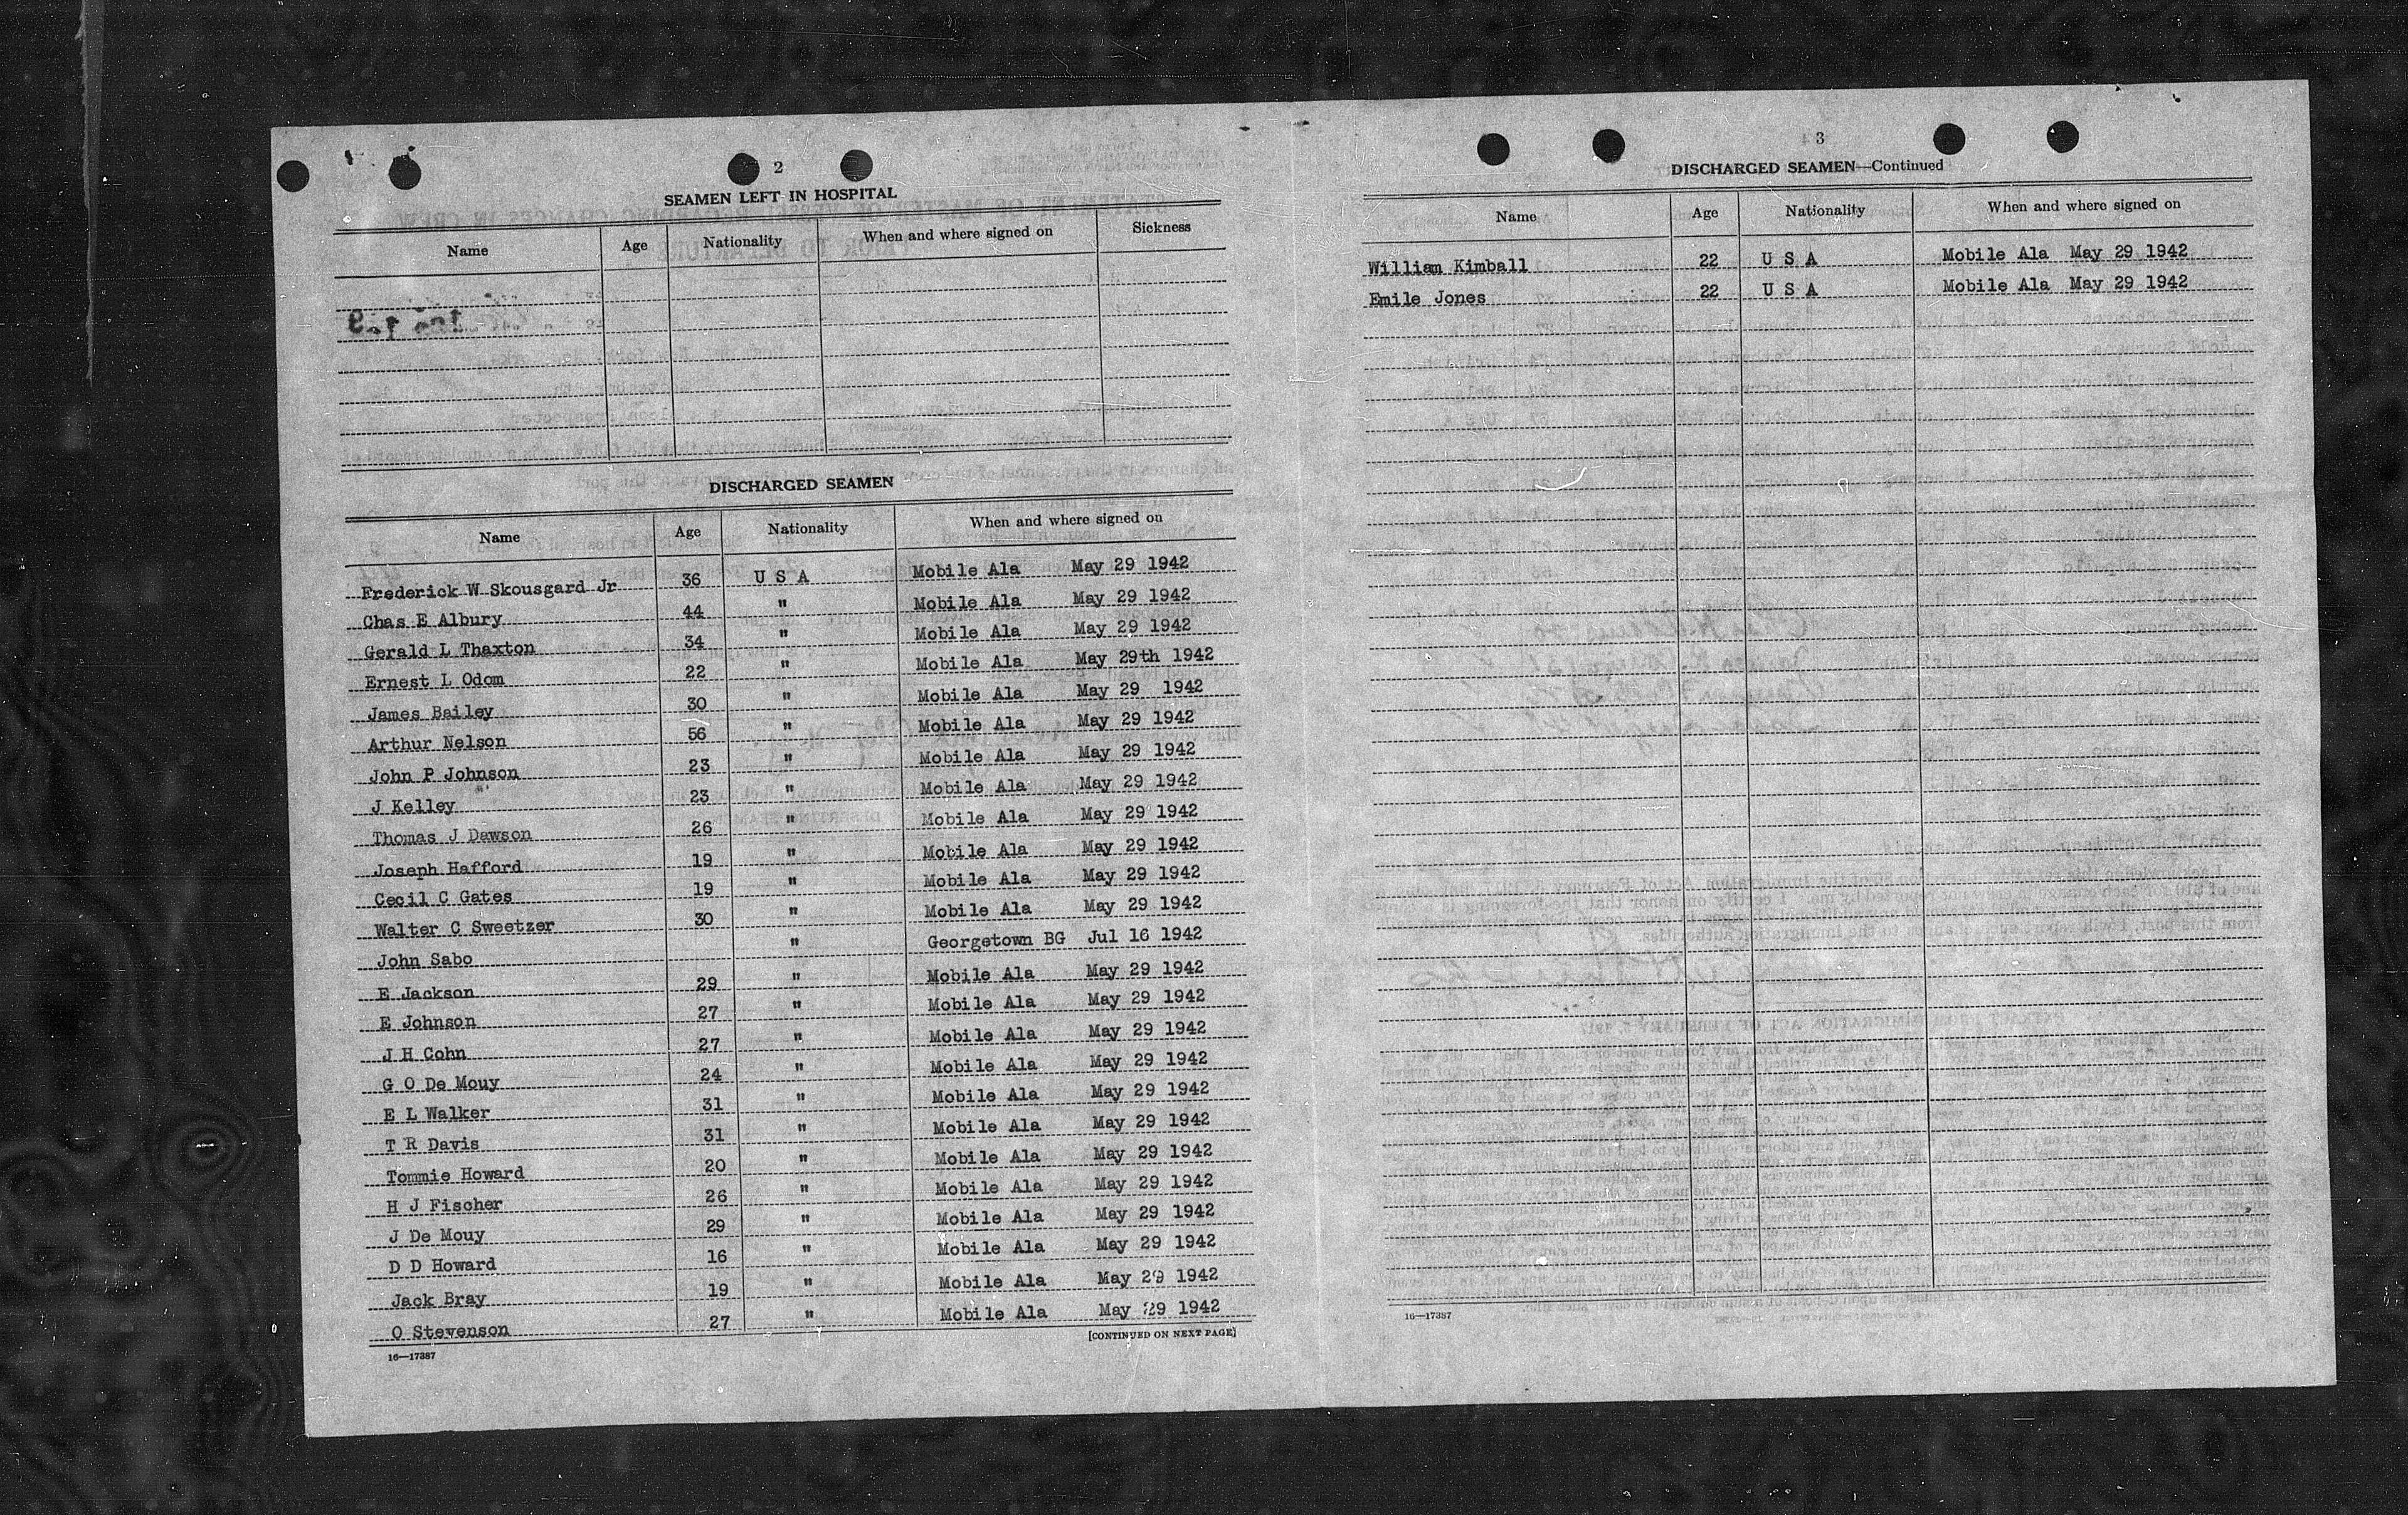 2
SEAMEN LEFT IN HOSPITAL
Name Age Nationality When and where signed on Sickness
DISCHARGED SEAMEN
Name Age Nationality When and where signed on
Frederick W Skousgard Jr 36 U S A Mobile Ala May 29 1942
Chas E Albury 44 " Mobile Ala May 29 1942
Gerald L Thaxton 34 " Mobile Ala May 29 1942
Ernest L Odom 22 " Mobile Ala May 29th 1942
James Bailey 30 " Mobile Ala May 29 1942
Arthur Nelson 56 " Mobile Ala May 29 1942
John P Johnson 23 " Mobile Ala May 29 1942
J Kelley 23 " Mobile Ala May 29 1942
Thomas J Dawson 26 " Mobile Ala May 29 1942
Joseph Hafford 19 " Mobile Ala May 29 1942
Cecil C Gates 19 " Mobile Ala May 29 1942
Walter C Sweetzer 30 " Mobile Ala May 29 1942
John Sabo " Georgetown BG Jul 16 1942
E Jackson 29 " Mobile Ala May 29 1942
E Johnson 27 " Mobile Ala May 29 1942
J H Cohn 27 " Mobile Ala May 29 1942
G O De Mouy 24 " Mobile Ala May 29 1942
E L Walker 31 " Mobile Ala May 29 1942
T R Davis 31 " Mobile Ala May 29 1942
Tommie Howard 20 " Mobile Ala May 29 1942
H J Fischer 26 " Mobile Ala May 29 1942
J De Mouy 29 " Mobile Ala May 29 1942
D D Howard 16 " Mobile Ala May 29 1942
Jack Bray 19 " Mobile Ala May 29 1942
O Stevenson 27 " Mobile Ala May 29 1942
[CONTINUED ON NEXT PAGE]
16—17387
3
DISCHARGED SEAMEN—Continued
Name Age Nationality When and where signed on
William Kimball 22 U S A Mobile Ala May 29 1942
Emile Jones 22 U S A Mobile Ala May 29 1942
16—17387